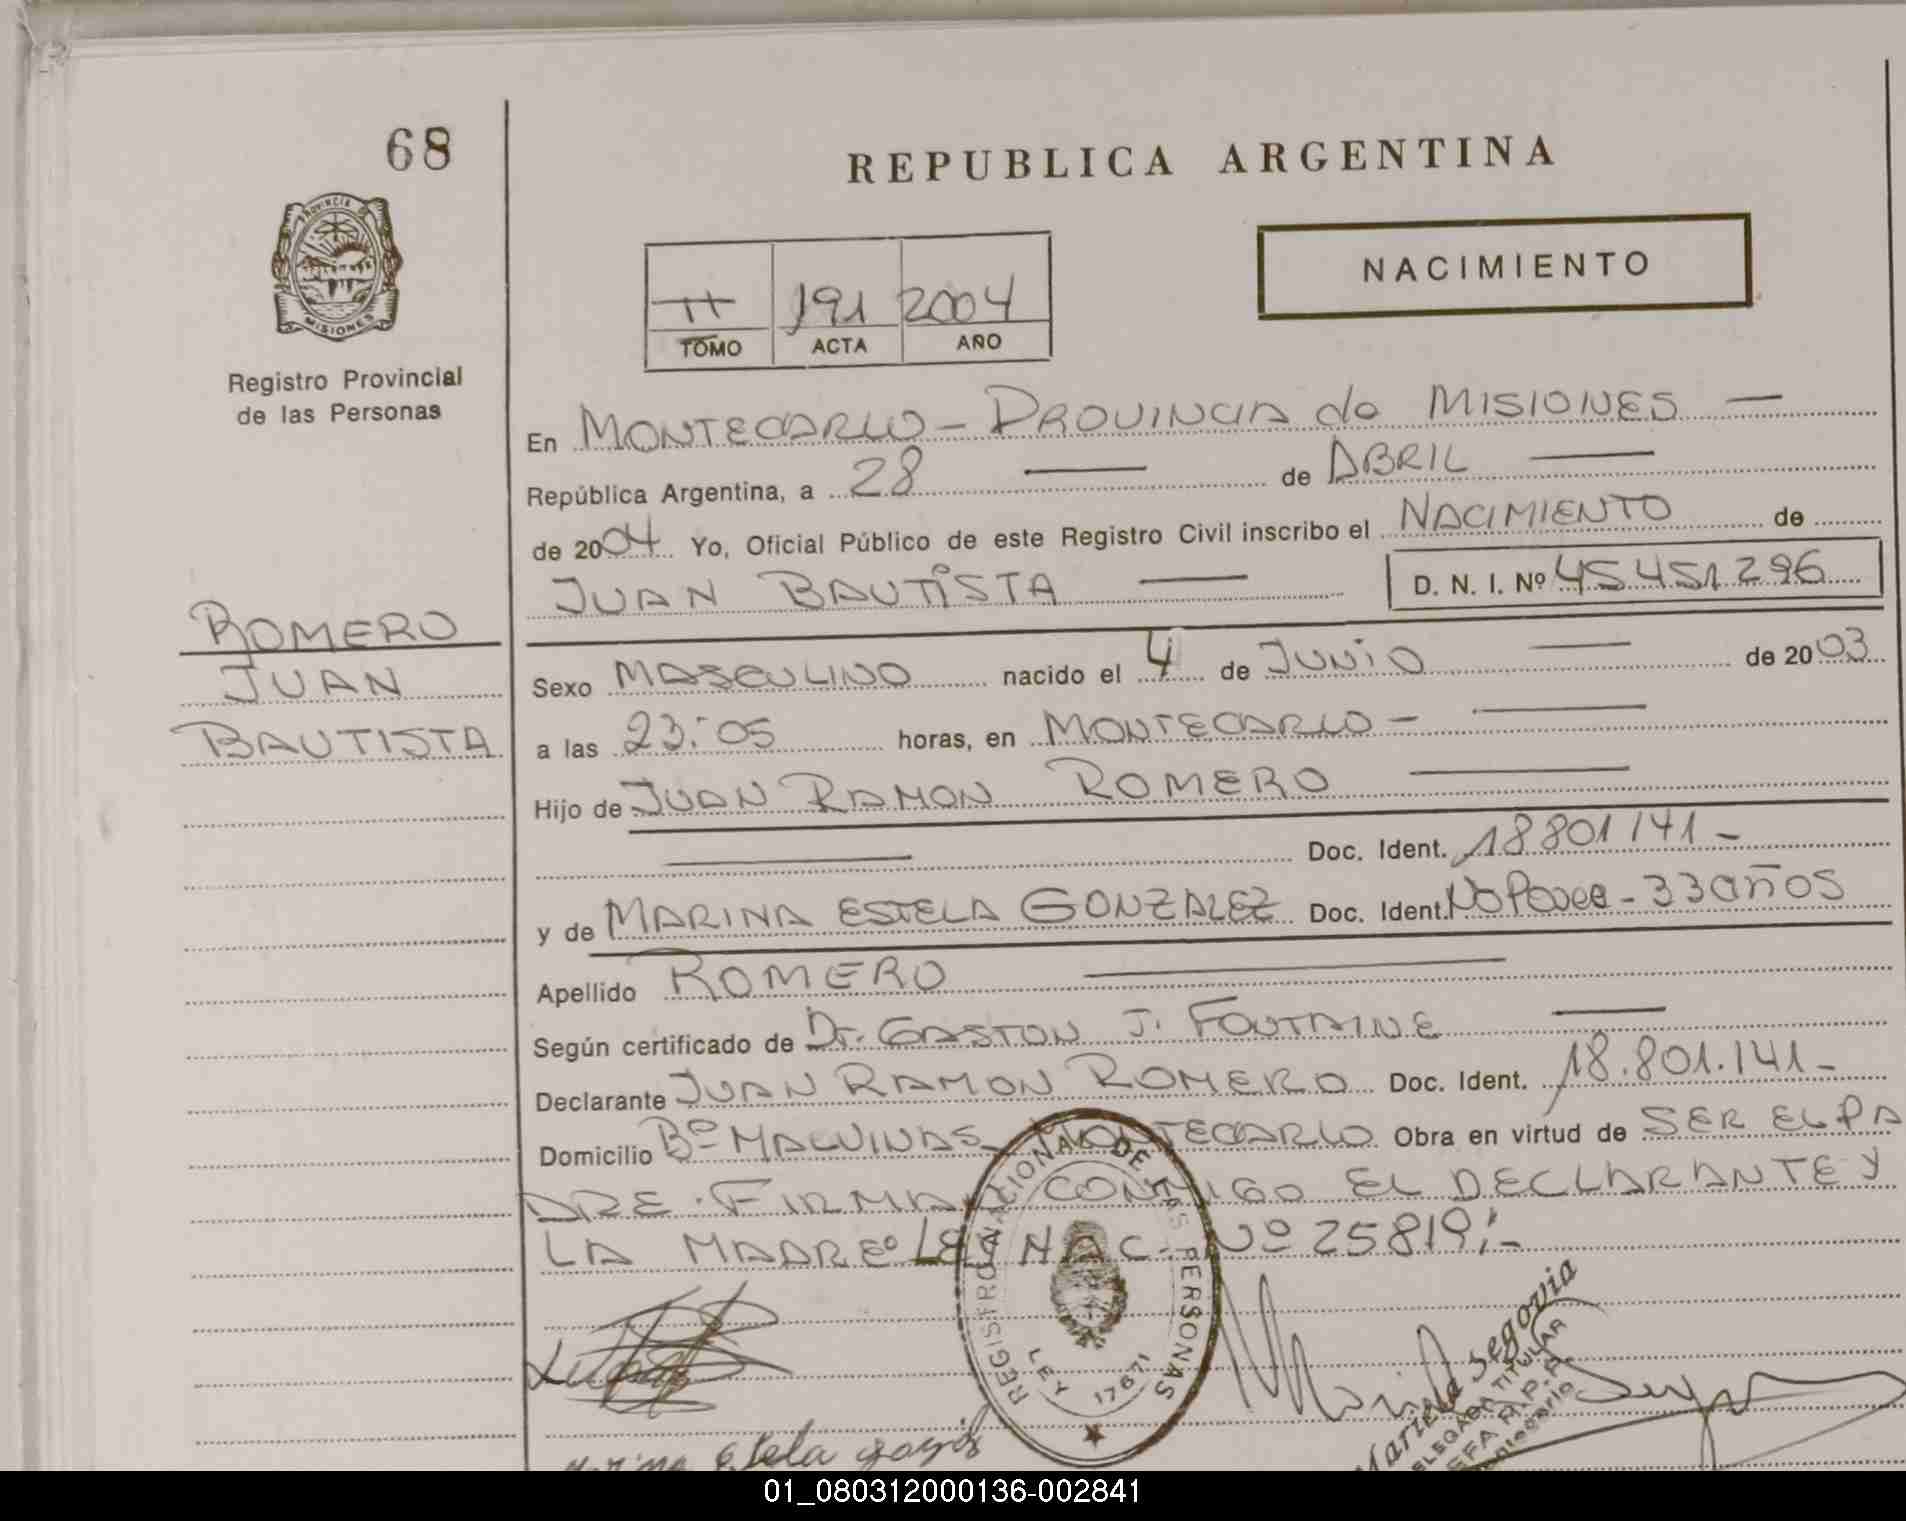 68
REPUBLICA ARGENTINA
NACIMIENTO
PROVINCIA DE
MISIONES
Registro Provincial
de las Personas
II 191 2004
TOMO ACTA AÑO
En MONTECARLO - PROVINCIA de MISIONES —
República Argentina, a 28 — de ABRIL —
de 2004 Yo, Oficial Público de este Registro Civil inscribo el NACIMIENTO de
JUAN BAUTISTA — D. N. I. Nº 45451296
ROMERO
JUAN
BAUTISTA
Sexo MASCULINO nacido el 4 de JUNIO — de 2003
a las 23:05 horas, en MONTECARLO - —
Hijo de JUAN RAMON ROMERO —
— Doc. Ident. 18801141 -
y de MARINA ESTELA GONZALEZ Doc. Ident. No Posee - 33 años
Apellido ROMERO —
Según certificado de Dr. GASTON J. FONTAINE —
Declarante JUAN RAMON ROMERO Doc. Ident. 18.801.141 -
Domicilio Bº MALVINAS - MONTECARLO Obra en virtud de SER EL PA
DRE. FIRMAN CONMIGO EL DECLARANTE Y
LA MADRE. LEY NAC. Nº 25819;-
REGISTRO NACIONAL DE LAS PERSONAS
LEY 17671
Mariela Segovia
DELEGADA TITULAR
Marina Estela
01_080312000136-002841